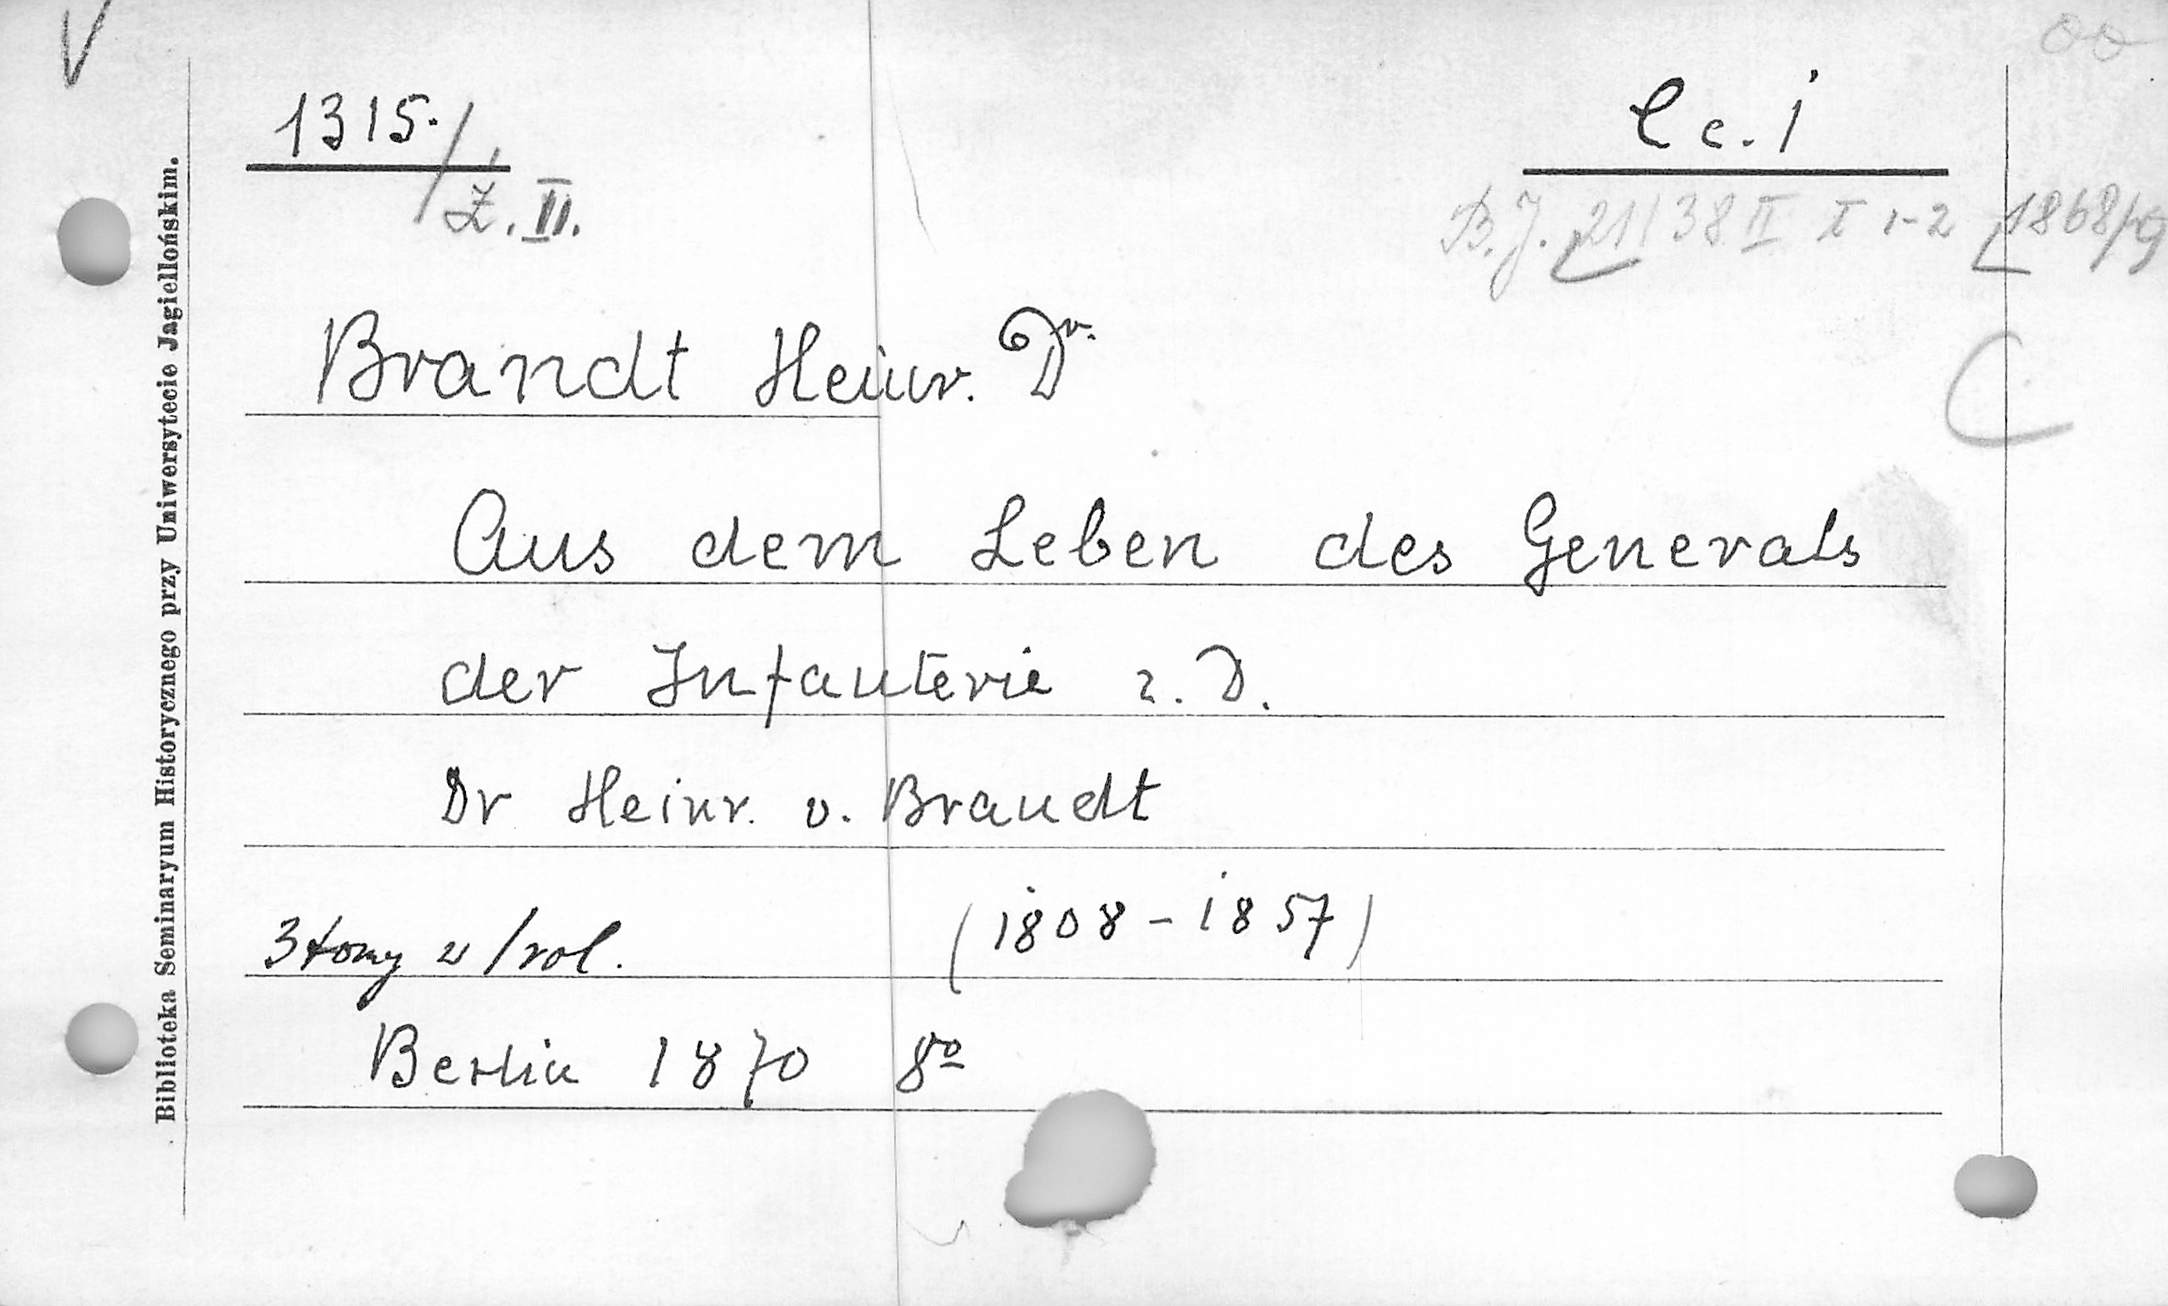 V
1315./
Z. II.
l c. i
B.J. 21138 II t 1-2 1868/9
C
Brandt Heinr. Dr.
Aus dem Leben des Generals
der Infanterie z. D.
Dr Heinr. v. Brandt
3 tomy w 1 vol. (1808-1857)
Berlin 1870 8o
Biblioteka Seminaryum Historycznego przy Uniwersytecie Jagiellońskim.